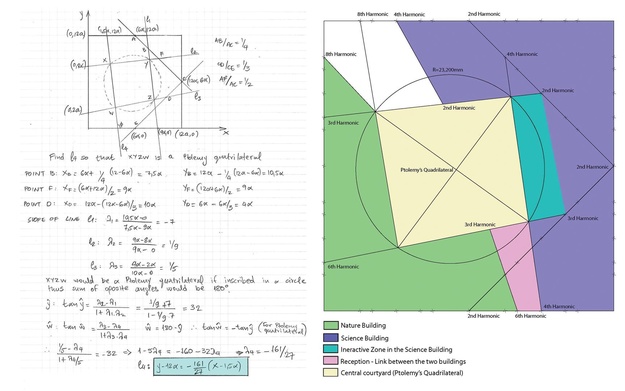 y
l₁
(0,12a)
(1,5a,12a)
(6a,12a)
A
B
F
l₂
(0,8a)
X
Y
E
(12a,6a)
l₃
(0,2a)
Z
D
W
C
(6a,0)
(12a,0)
x
l₄
AB/AE = 1/4
CD/CE = 1/3
AF/AE = 1/2
Find l₄ so that XYZW is a Ptolemy quadrilateral
POINT B: X_B = 6a + 1/4 (12-6a) = 7,5a Y_B = 12a - 1/4 (12a-6a) = 10,5a
POINT F: X_F = (6a+12a)/2 = 9a Y_F = (12a+6a)/2 = 9a
POINT D: X_D = 12a-(12a-6a)/3 = 10a Y_D = 6a - 6a/3 = 4a
SLOPE OF LINE l₁: λ₁ = = -7
l₂: λ₂ = = 1/9
l₃: λ₃ = 4a-2a/10a-0 = 1/5
XYZW would be a Ptolemy quadrilateral if inscribed in a circle
thus sum of oposite angles would be 180°.
ŷ: tanŷ = λ₂-λ₁/1+λ₁λ₂ = 1/9+7/1-1/9·7 = 32
ŵ: tanŵ = λ₃-λ₄/1+λ₃λ₄ ŵ = 180-ŷ ∴ tanŵ = -tanŷ (for Ptolemy quadrilateral)
∴ 1/5-λ₄/1+λ₄/5 = -32 ⇒ 1-5λ₄ = -160-32λ₄ ⇒ λ₄ = -161/27
l₄: y-12a = -161/27 (x-1,5a)
8th Harmonic
4th Harmonic
2nd Harmonic
8th Harmonic
4th Harmonic
R=23,200mm
2nd Harmonic
2nd Harmonic
3rd Harmonic
3rd Harmonic
Ptolemy's Quadrilateral
2nd Harmonic
3rd Harmonic
3rd Harmonic
6th Harmonic
2nd Harmonic
6th Harmonic
4th Harmonic
Nature Building
Science Building
Ineractive Zone in the Science Building
Reception - Link between the two buildings
Central courtyard (Ptolemy's Quadrilateral)